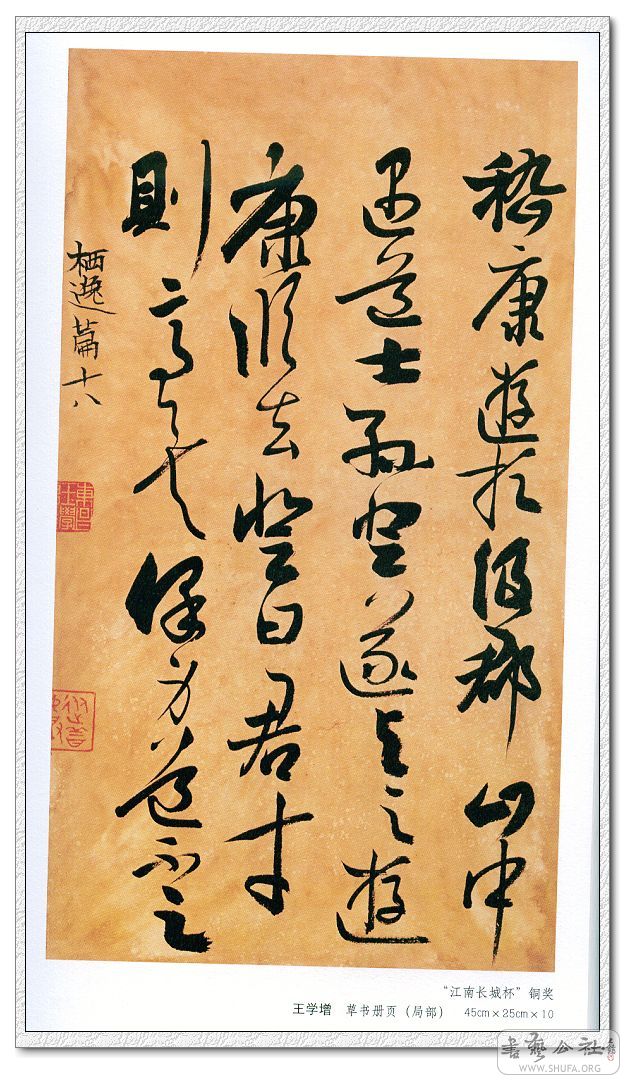 嵇康遊於汲郡山中
遇道士孫登遂與之遊
康臨去登曰君才
則高矣保身之道不足
栖逸篇十八
“江南长城杯”铜奖
王学增 草书册页(局部) 45cm×25cm×10
书艺公社
WWW.SHUFA.ORG